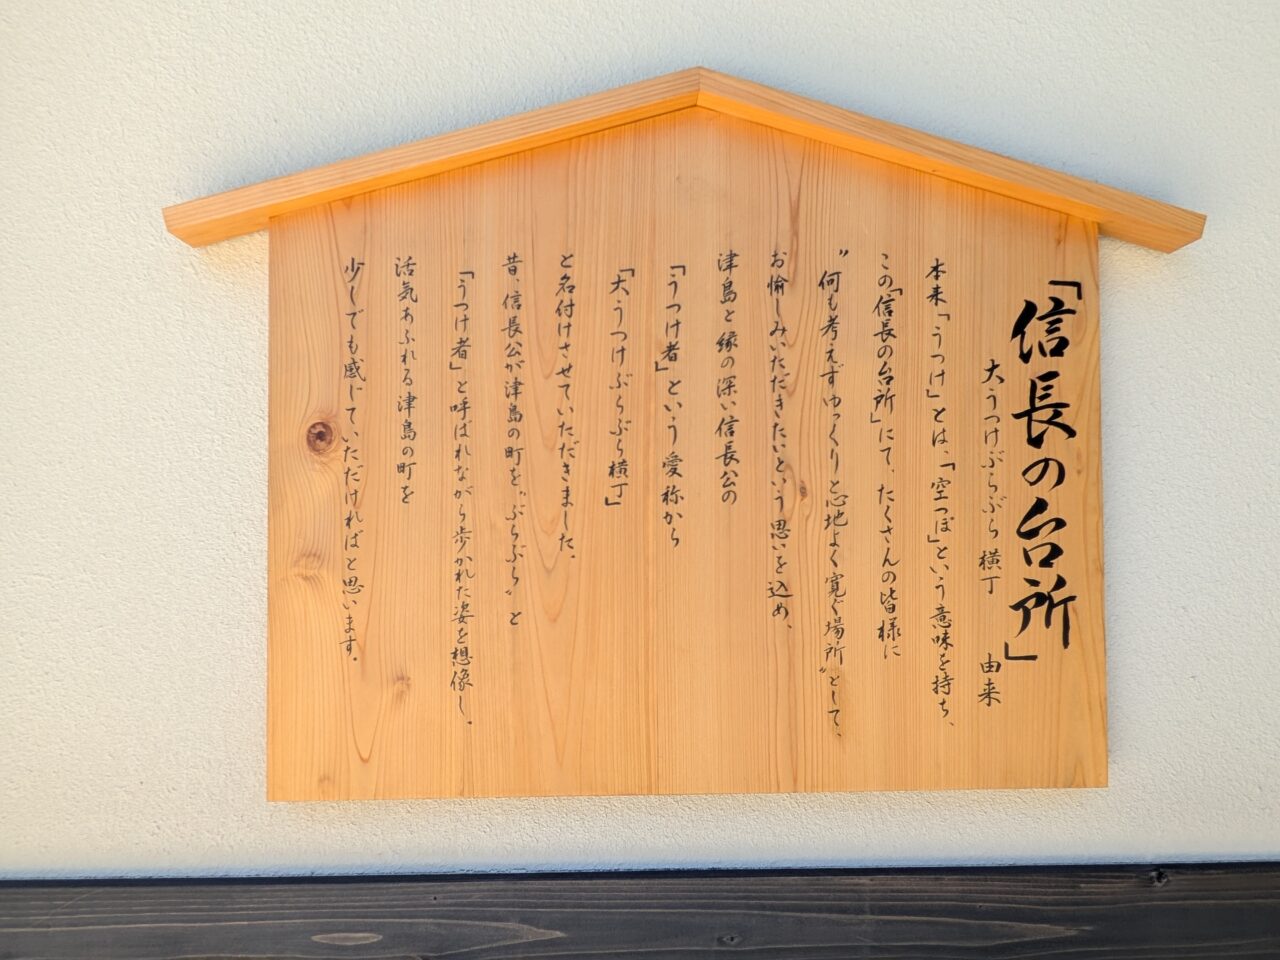 「信長の台所」
大うつけぶらぶら横丁　由来
本来「うつけ」とは、「空っぽ」という意味を持ち、
この「信長の台所」にて、たくさんの皆様に
〝何も考えずゆっくりと心地よく寛ぐ場所〟として、
お愉しみいただきたいという思いを込め、
津島と縁の深い信長公の
「うつけ者」という愛称から
「大うつけぶらぶら横丁」
と名付けさせていただきました。
昔、信長公が津島の町を〝ぶらぶら〟と
「うつけ者」と呼ばれながら歩かれた姿を想像し、
活気あふれる津島の町を
少しでも感じていただければと思います。